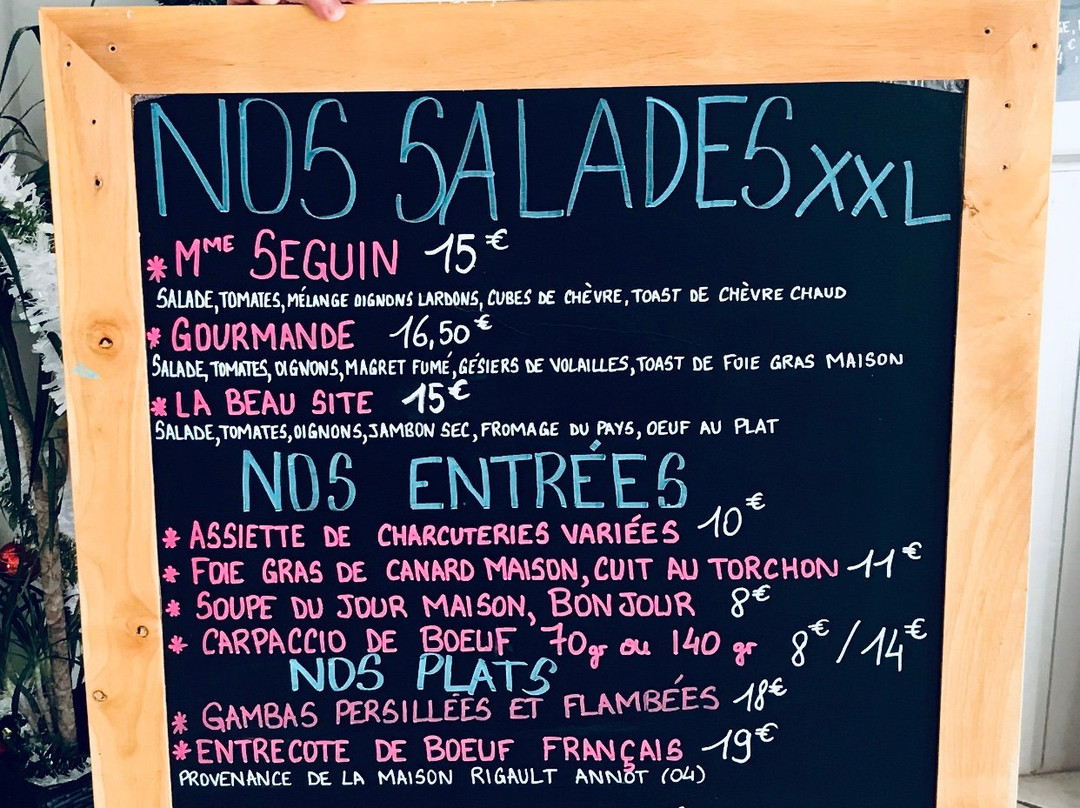 NOS SALADES XXL
* MME SEGUIN 15€
SALADE, TOMATES, MÉLANGE OIGNONS LARDONS, CUBES DE CHÈVRE, TOAST DE CHÈVRE CHAUD
* GOURMANDE 16,50€
SALADE, TOMATES, OIGNONS, MAGRET FUMÉ, GÉSIERS DE VOLAILLES, TOAST DE FOIE GRAS MAISON
* LA BEAU SITE 15€
SALADE, TOMATES, OIGNONS, JAMBON SEC, FROMAGE DU PAYS, OEUF AU PLAT
NOS ENTRÉES
* ASSIETTE DE CHARCUTERIES VARIÉES 10€
* FOIE GRAS DE CANARD MAISON, CUIT AU TORCHON 11€
* SOUPE DU JOUR MAISON, BONJOUR 8€
* CARPACCIO DE BOEUF 70gr ou 140 gr 8€ / 14€
NOS PLATS
* GAMBAS PERSILLÉES ET FLAMBÉES 18€
* ENTRECOTE DE BOEUF FRANÇAIS 19€
PROVENANCE DE LA MAISON RIGAULT ANNOT (04)